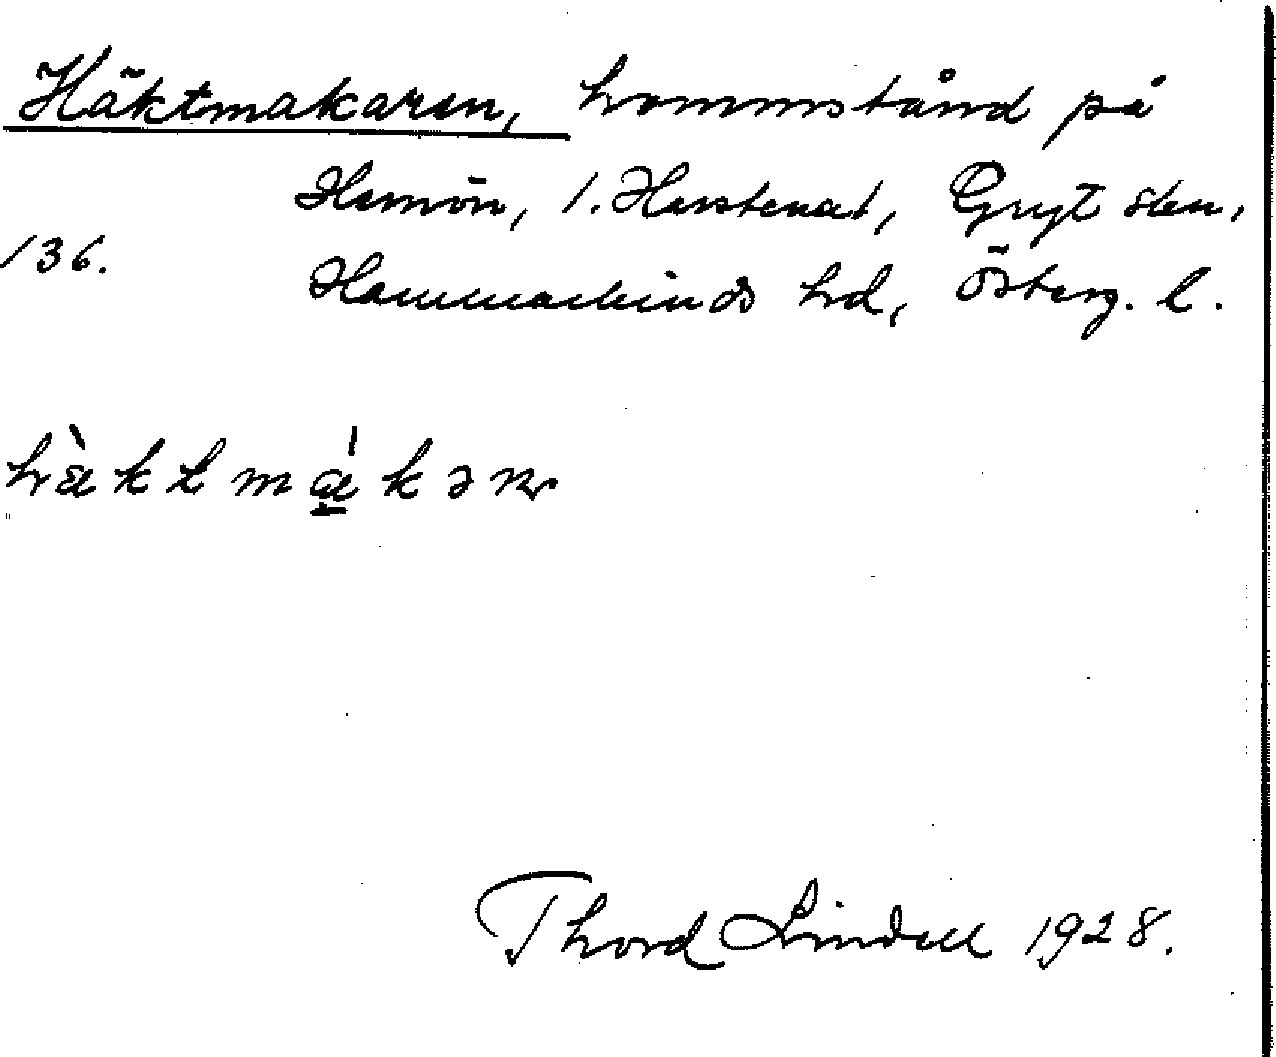 Häktmakaren, hommstånd på
Hemön, l. Harstena l, Gryt skn,
136.
Hammarkinds hd, Österg. l.
häktmakən
Thord Lindell 1928.